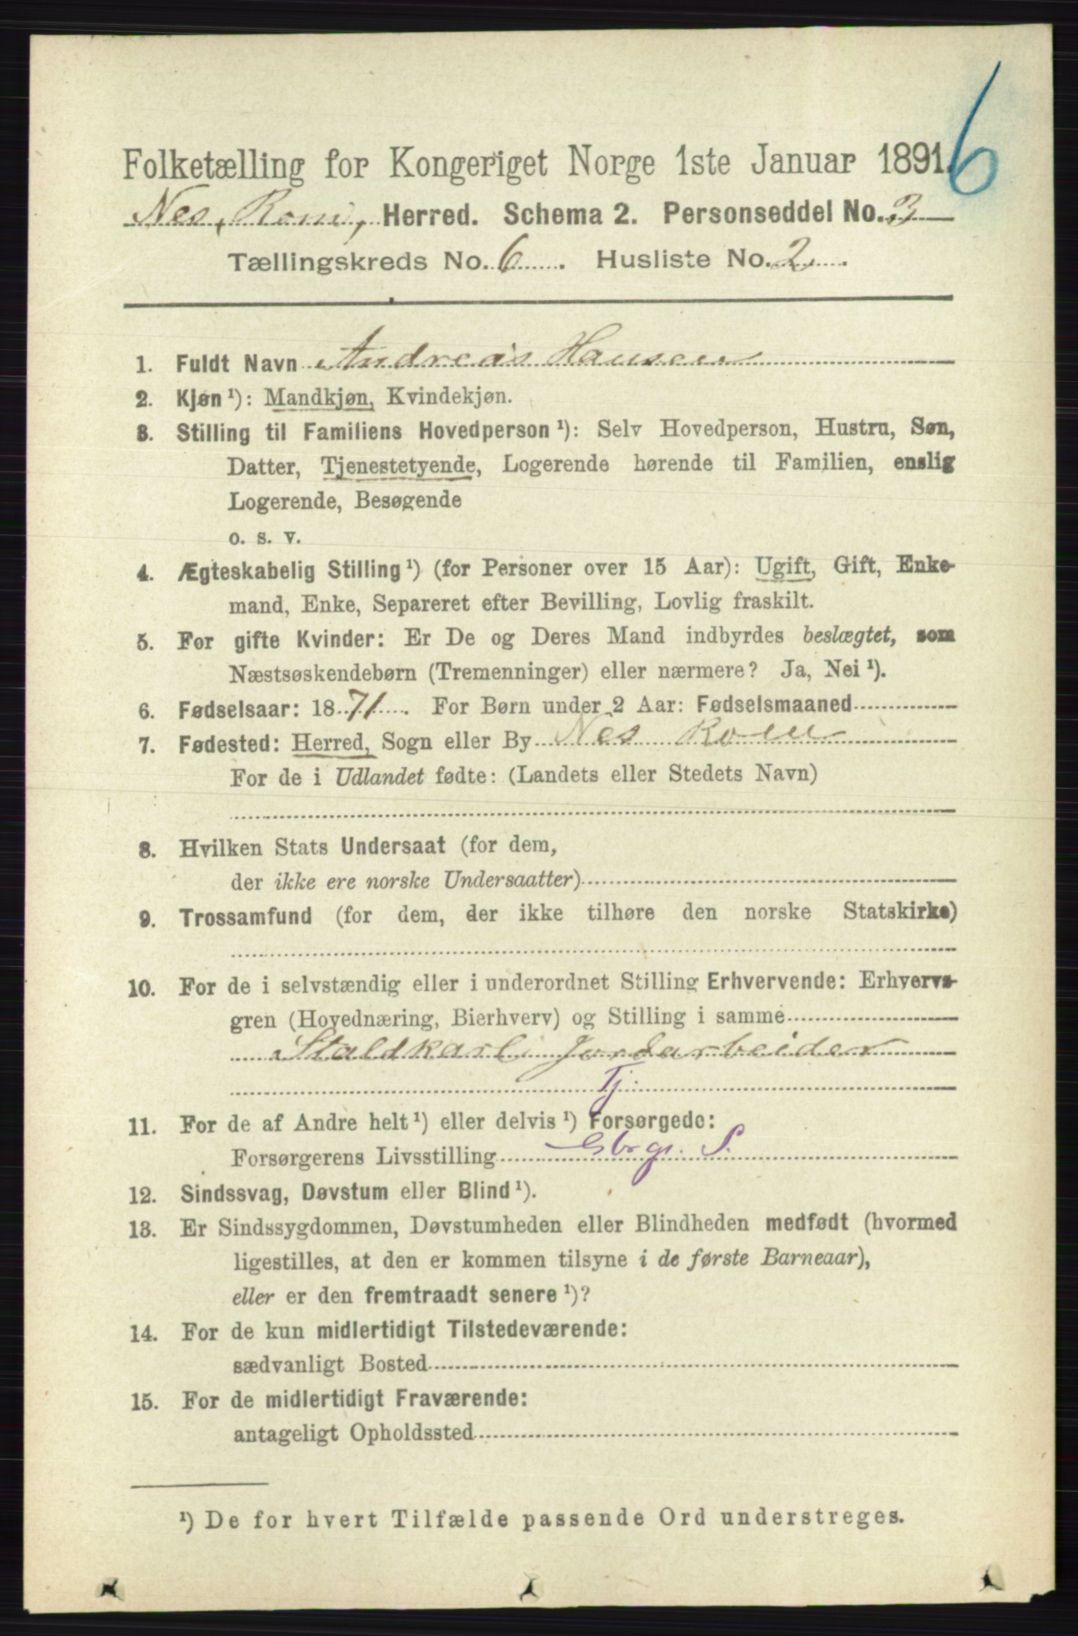 6
Folketælling for Kongeriget Norge 1ste Januar 1891.
Nes, Rom, Herred. Schema 2. Personseddel No. 3
Tællingskreds No. 6. Husliste No. 2.
1. Fuldt Navn Andreas Hansen
2. Kjøn ¹): Mandkjøn, Kvindekjøn.
3. Stilling til Familiens Hovedperson ¹): Selv Hovedperson, Hustru, Søn,
Datter, Tjenestetyende, Logerende hørende til Familien, enslig
Logerende, Besøgende
o. s. v.
4. Ægteskabelig Stilling ¹) (for Personer over 15 Aar): Ugift, Gift, Enke-
mand, Enke, Separeret efter Bevilling, Lovlig fraskilt.
5. For gifte Kvinder: Er De og Deres Mand indbyrdes beslægtet, som
Næstsøskendebørn (Tremenninger) eller nærmere? Ja, Nei ¹).
6. Fødselsaar: 1871. For Børn under 2 Aar: Fødselsmaaned
7. Fødested: Herred, Sogn eller By Nes Rom
For de i Udlandet fødte: (Landets eller Stedets Navn)
8. Hvilken Stats Undersaat (for dem,
der ikke ere norske Undersaatter)
9. Trossamfund (for dem, der ikke tilhøre den norske Statskirke)
10. For de i selvstændig eller i underordnet Stilling Erhvervende: Erhvervs-
gren (Hovednæring, Bierhverv) og Stilling i samme
Staldkarl Jordarbeider
Tj.
11. For de af Andre helt ¹) eller delvis ¹) Forsørgede:
Forsørgerens Livsstilling Gbr. S.
12. Sindssvag, Døvstum eller Blind ¹).
13. Er Sindssygdommen, Døvstumheden eller Blindheden medfødt (hvormed
ligestilles, at den er kommen tilsyne i de første Barneaar),
eller er den fremtraadt senere ¹)?
14. For de kun midlertidigt Tilstedeværende:
sædvanligt Bosted
15. For de midlertidigt Fraværende:
antageligt Opholdssted
¹) De for hvert Tilfælde passende Ord understreges.